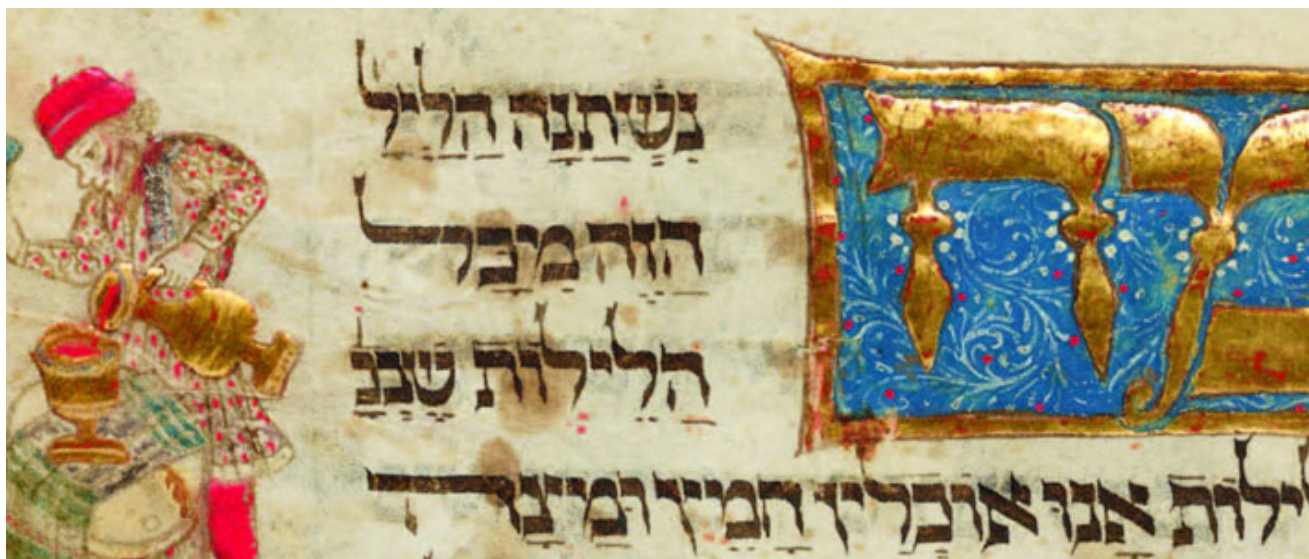 מה
נשתנה הליל
הזה מכל
הלילות שבכ
ילות אנו אוכלין חמץ ומצה